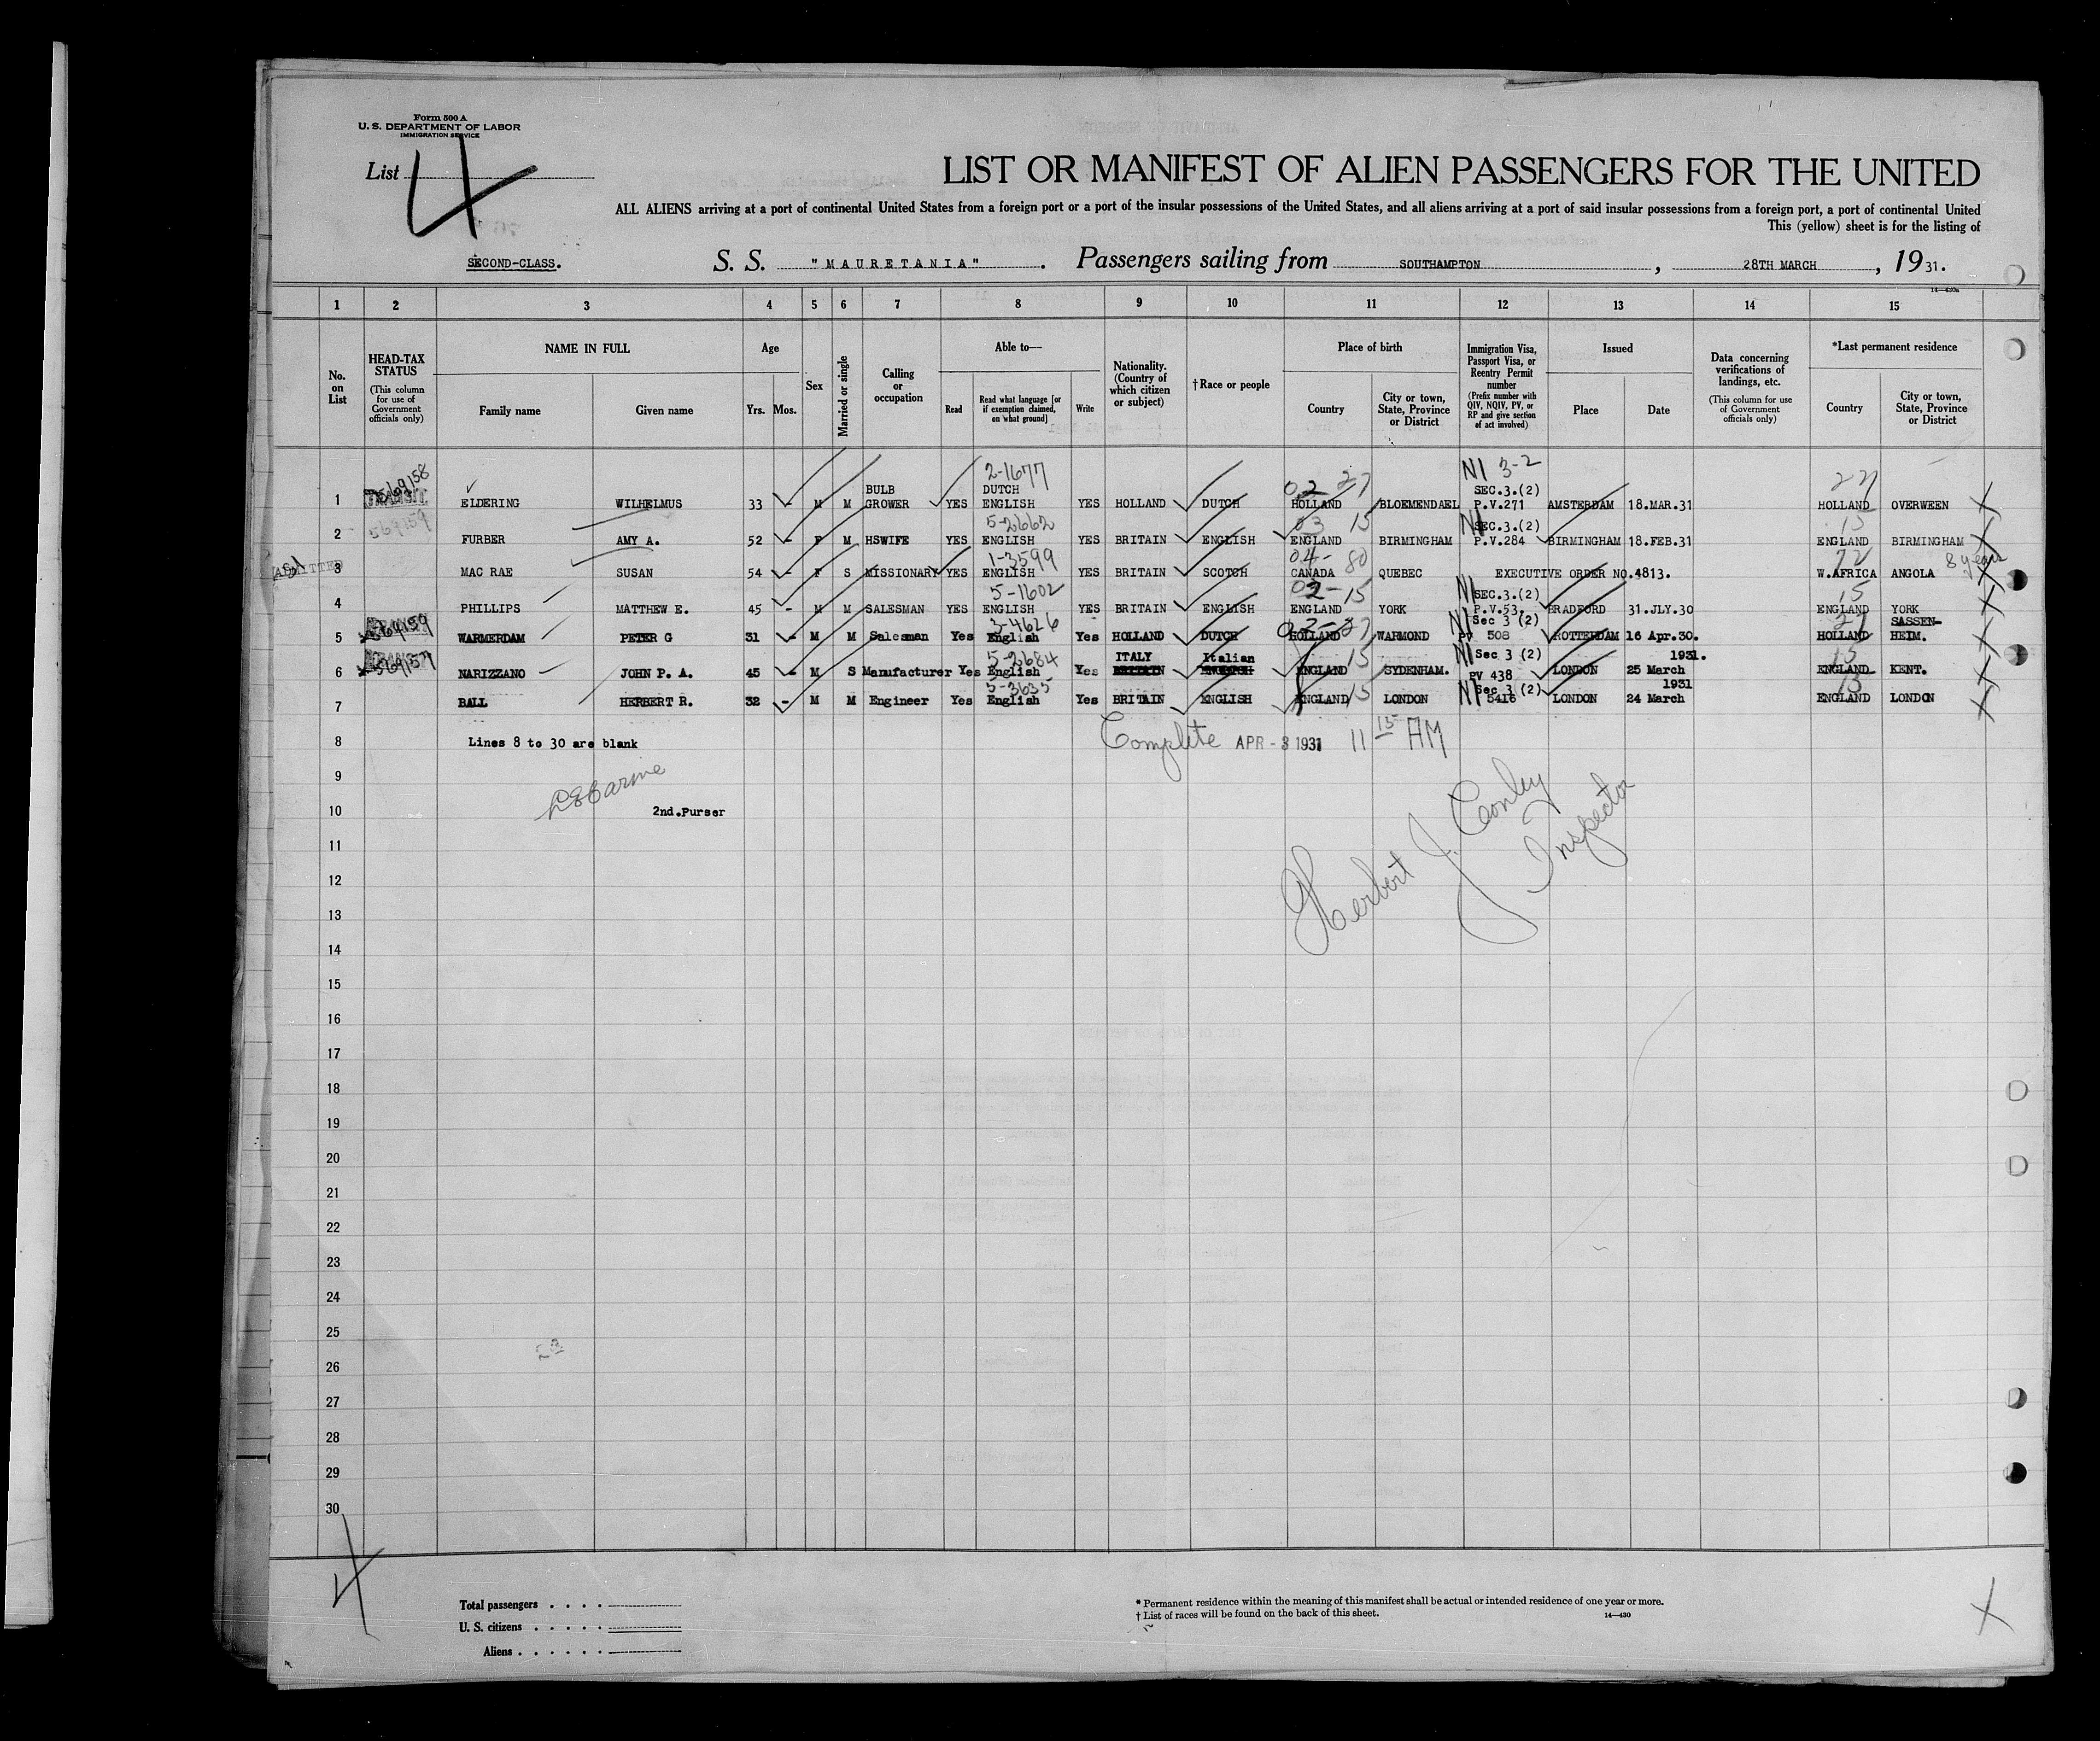 Form 500 A
U. S. DEPARTMENT OF LABOR
IMMIGRATION SERVICE
List 4
LIST OR MANIFEST OF ALIEN PASSENGERS FOR THE UNITED
ALL ALIENS arriving at a port of continental United States from a foreign port or a port of the insular possessions of the United States, and all aliens arriving at a port of said insular possessions from a foreign port, a port of continental United
This (yellow) sheet is for the listing of
SECOND-CLASS. S. S. "MAURETANIA". Passengers sailing from SOUTHAMPTON, 28TH MARCH, 1931.
14—430a
1 2 3 4 5 6 7 8 9 10 11 12 13 14 15
No. on List
HEAD-TAX STATUS (This column for use of Government officials only)
NAME IN FULL Family name Given name
Age Yrs. Mos.
Sex
Married or single
Calling or occupation
Able to— Read Read what language [or if exemption claimed, on what ground] Write
Nationality. (Country of which citizen or subject)
†Race or people
Place of birth Country City or town, State, Province or District
Immigration Visa, Passport Visa, or Reentry Permit number (Prefix number with QIV, NQIV, PV, or RP and give section of act involved)
Issued Place Date
Data concerning verifications of landings, etc. (This column for use of Government officials only)
*Last permanent residence Country City or town, State, Province or District
2-1677 02 27 NI 3-2 27
1 569158 TRANSIT ELDERING WILHELMUS 33 M M BULB GROWER YES DUTCH ENGLISH YES HOLLAND DUTCH HOLLAND BLOEMENDAEL SEC.3.(2) P.V.271 AMSTERDAM 18.MAR.31 HOLLAND OVERWEEN
5-2662 03 15 NI 15
2 569159 FURBER AMY A. 52 - F M HSWIFE YES ENGLISH YES BRITAIN ENGLISH ENGLAND BIRMINGHAM SEC.3.(2) P.V.284 BIRMINGHAM 18.FEB.31 ENGLAND BIRMINGHAM
1-3599 04- 80 72 8 years
ADMITTED 3 MAC RAE SUSAN 54 - F S MISSIONARY YES ENGLISH YES BRITAIN SCOTCH CANADA QUEBEC EXECUTIVE ORDER NO.4813. W.AFRICA ANGOLA
5-1602 02-15 NI 15
4 PHILLIPS MATTHEW E. 45 - M M SALESMAN YES ENGLISH YES BRITAIN ENGLISH ENGLAND YORK SEC.3.(2) P.V.53. BRADFORD 31.JLY.30 ENGLAND YORK
3-4626 02-27 NI 27
5 569159 WARMERDAM PETER G 31 - M M Salesman Yes English Yes HOLLAND DUTCH HOLLAND WARMOND Sec 3 (2) PV 508 ROTTERDAM 16 Apr.30. HOLLAND SASSEN-HEIM.
5-2684 15 NI 15
6 569157 NARIZZANO JOHN P. A. 45 - M S Manufacturer Yes English Yes ITALY BRITAIN Italian ENGLISH ENGLAND SYDENHAM. Sec 3 (2) PV 438 LONDON 25 March 1931. ENGLAND KENT.
5-3635 15 NI 15
7 BALL HERBERT R. 32 - M M Engineer Yes English Yes BRITAIN ENGLISH ENGLAND LONDON Sec 3 (2) 5416 LONDON 24 March 1931 ENGLAND LONDON
8 Lines 8 to 30 are blank Complete APR - 3 1931 11 15 AM
9
10 2nd.Purser
Herbert J. Conley
Inspector
11
12
13
14
15
16
17
18
19
20
21
22
23
24
25
26
27
28
29
30
4
Total passengers
U. S. citizens
Aliens
* Permanent residence within the meaning of this manifest shall be actual or intended residence of one year or more.
† List of races will be found on the back of this sheet. 14—430